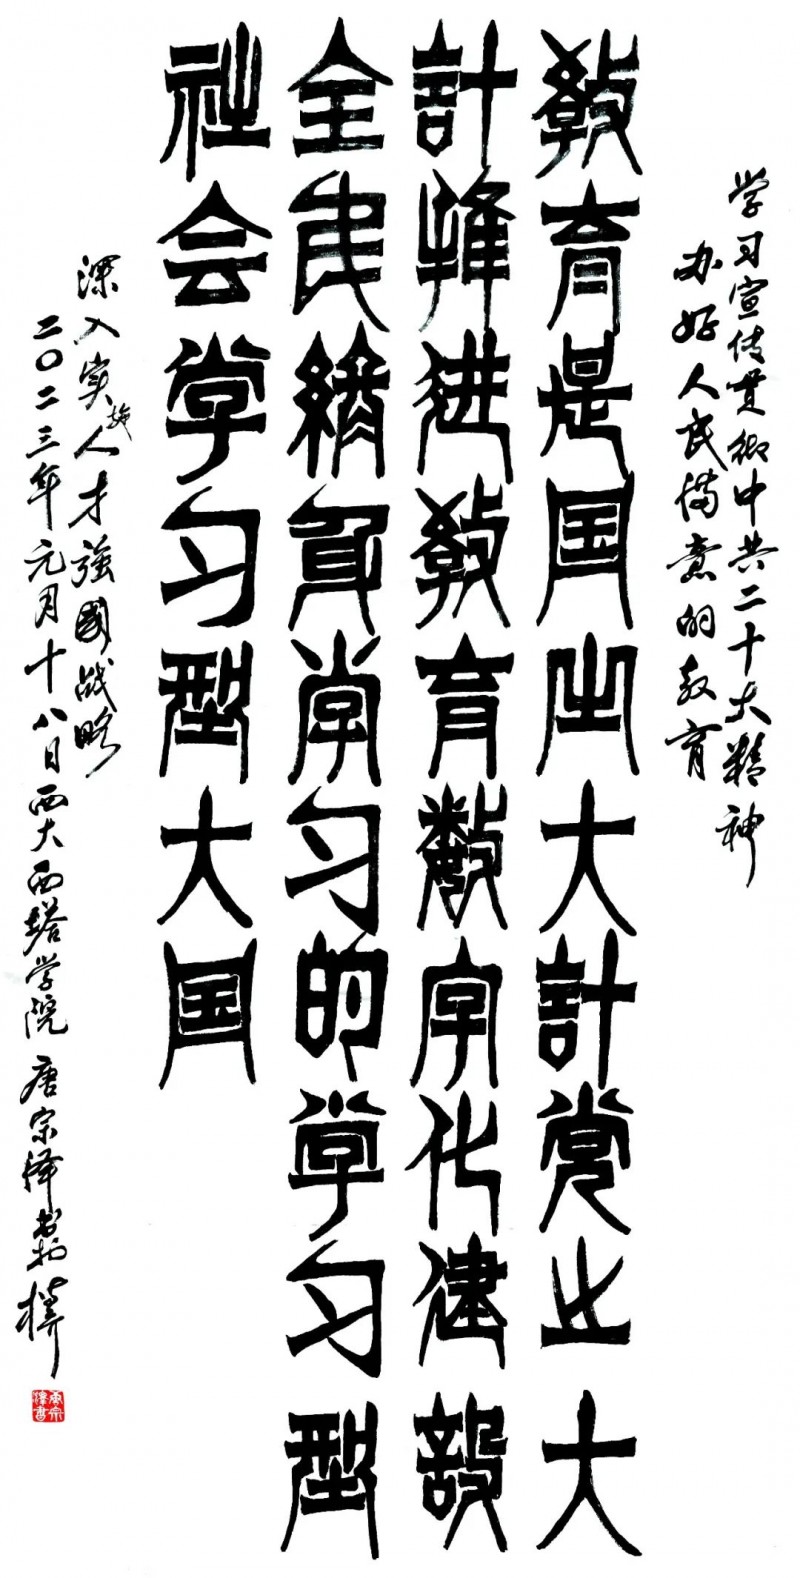 学习宣传贯彻中共二十大精神
办好人民满意的教育
教育是国之大計党之大
計推进教育数字化建設
全民終身学习的学习型
社会学习型大国
深入实施人才強國战略
二〇二三年元月十八日西大西塔学院唐宗泽书
唐宗泽書